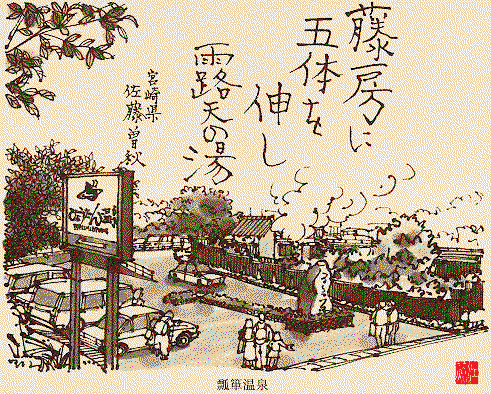 藤房に
五体を
伸し
露天の湯
宮崎県
佐藤曽秋
ひょうたん温泉
瓢箪温泉